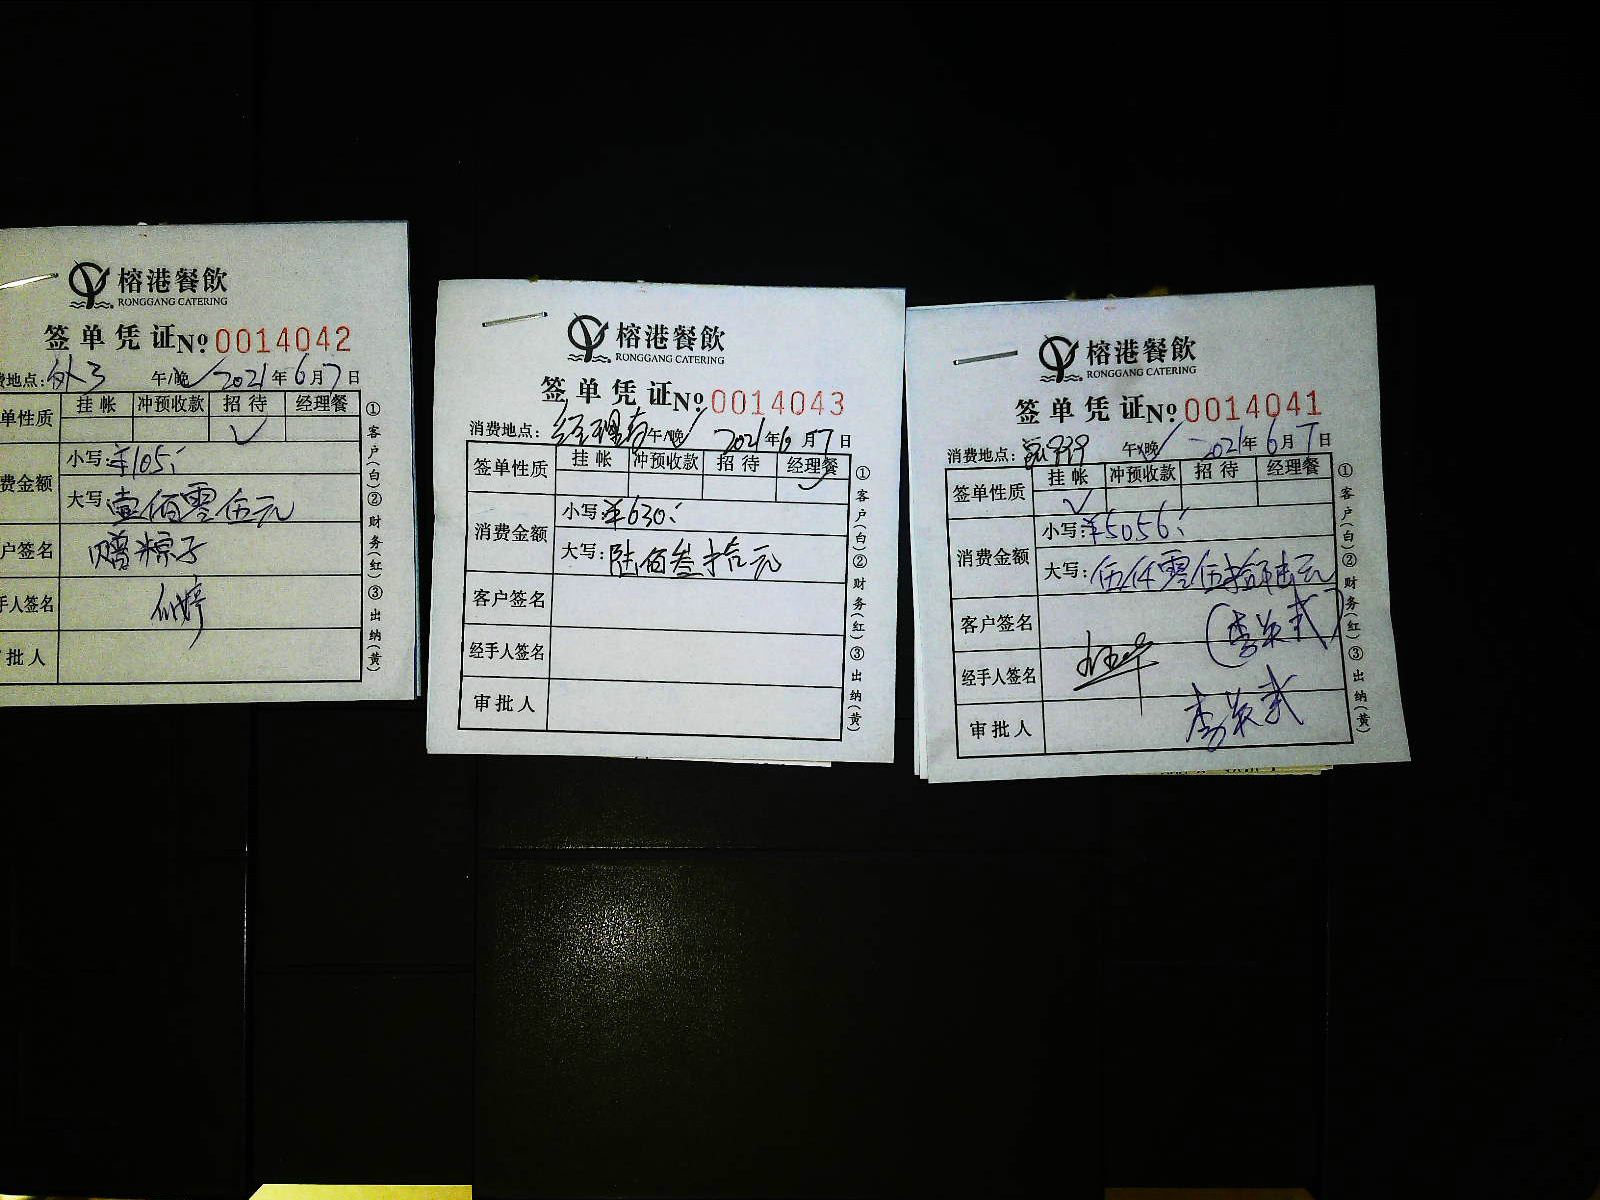 榕港餐飲
RONGGANG CATERING
签单凭证 № 0014042
费地点: 外3 午/晚 ✓ 2021年6月7日
单性质 挂帐 冲预收款 招待 经理餐
✓
费金额 小写: ¥105
大写: 壹佰零伍元
户签名 赠粽子
手人签名
批人
①客户(白)②财务(红)③出纳(黄)
榕港餐飲
RONGGANG CATERING
签单凭证 № 0014043
消费地点: 经理 午/晚 ✓ 2021年6月7日
签单性质 挂帐 冲预收款 招待 经理餐
✓
消费金额 小写: ¥630
大写: 陆佰叁拾元
客户签名
经手人签名
审批人
①客户(白)②财务(红)③出纳(黄)
榕港餐飲
RONGGANG CATERING
签单凭证 № 0014041
消费地点: 939 午/晚 ✓ 2021年6月7日
签单性质 挂帐 冲预收款 招待 经理餐
✓
消费金额 小写: ¥5056
大写: 伍仟零伍拾陆元
客户签名
经手人签名
审批人
①客户(白)②财务(红)③出纳(黄)